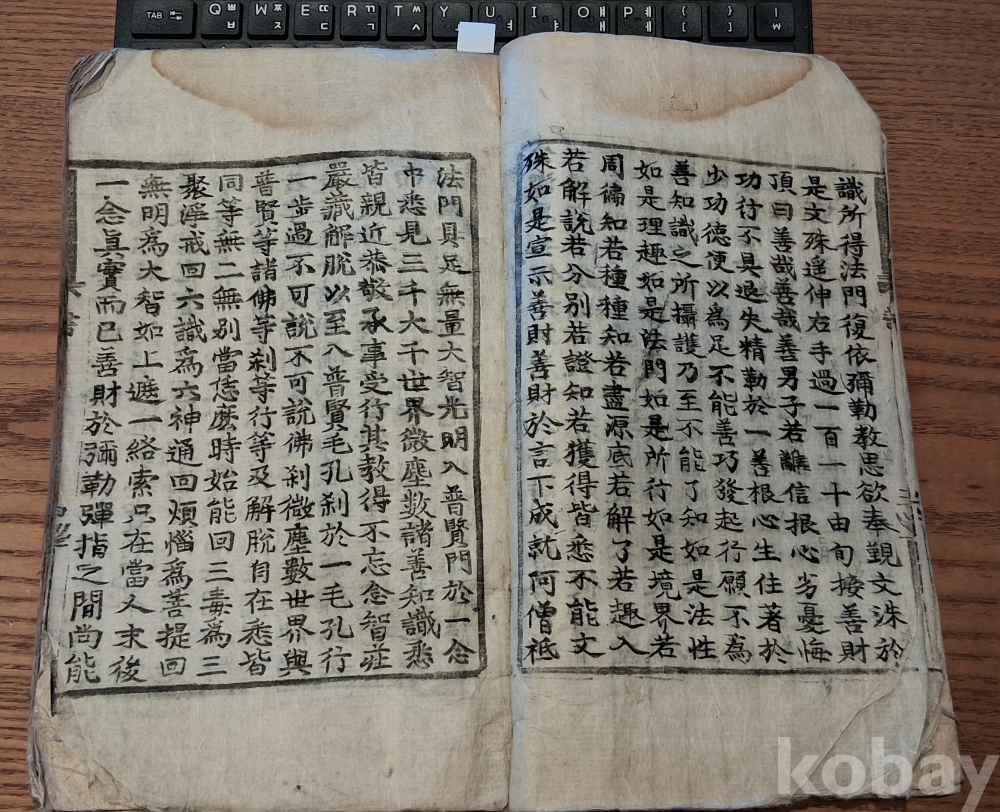 TAB Q ㅃ ㅂ W ㅉ ㅈ E ㄸ ㄷ R ㄲ ㄱ T ㅆ ㅅ Y ㅛ U ㅕ I ㅑ O ㅒ ㅐ P ㅖ ㅔ { [ } ] | ₩
識所得法門復依彌勒教思欲奉覲文洙於
是文殊遙伸右手過一百一十由旬按善財
頂曰善哉善哉善男子若離信根心劣憂悔
功行不具退失精勤於一善根心生住著於
少功德便以爲足不能善巧發起行願不爲
善知識之所攝護乃至不能了知如是法性
如是理趣如是法門如是所行如是境界若
周徧知若種種知若盡源底若解了若趣入
若解說若分別若證知若獲得皆悉不能文
殊如是宣示善財善財於言下成就阿僧祇
法門具足無量大智光明入普賢門於一念
中悉見三千大千世界微塵數諸善知識悉
皆親近恭敬承事受行其教得不忘念智莊
嚴藏解脫以至入普賢毛孔刹於一毛孔行
一步過不可說不可說佛刹微塵數世界與
普賢等諸佛等刹等行等及解脫自在悉皆
同等無二無別當恁麽時始能回三毒爲三
聚淨戒回六識爲六神通回煩惱爲菩提回
無明爲大智如上遮一絡索只在當人末後
一念眞實而已善財於彌勒彈指之間尚能
kobay